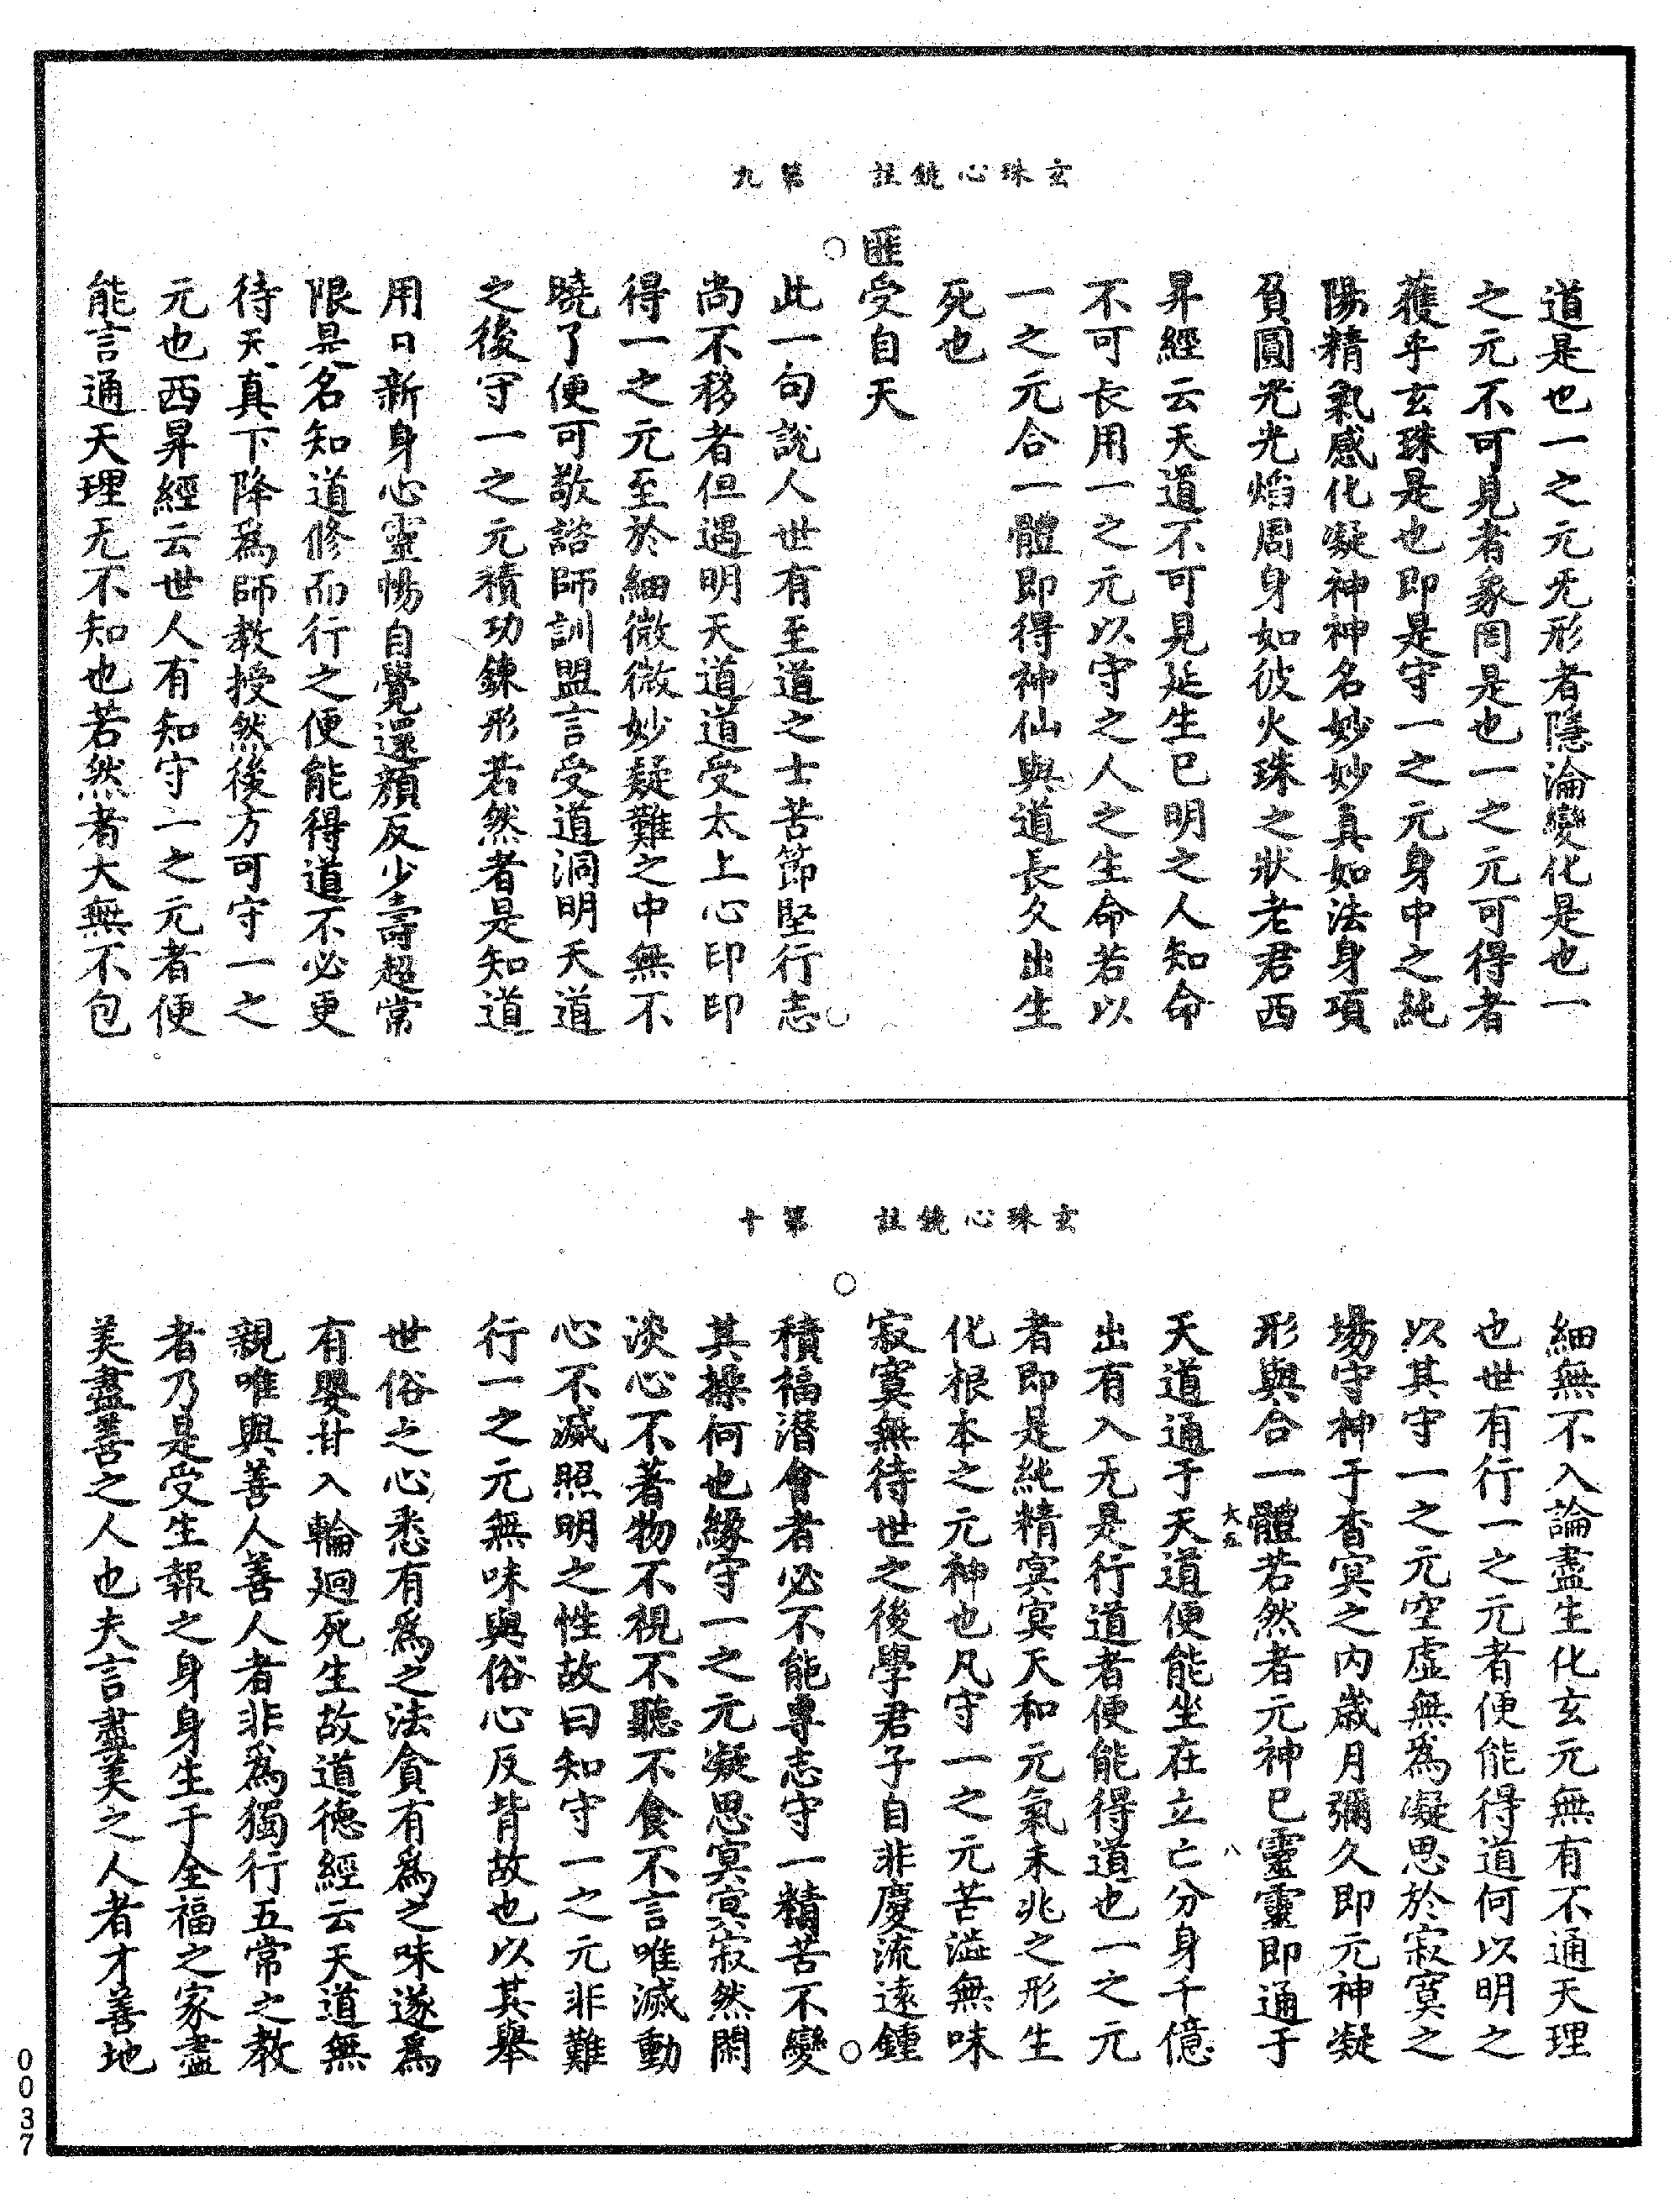 玄珠心鏡註　第九
道是也一之元无形者隱淪變化是也一
之元不可見者象罔是也一之元可得者
獲乎玄珠是也即是守一之元身中之純
陽精氣感化凝神神名妙妙真如法身項
負圓光光焰周身如彼火珠之狀老君西
昇經云天道不可見延生巳明之人知命
不可長用一之元以守之人之生命若以
一之元合一體即得神仙與道長久出生
死也
匪受自天
此一句說人世有至道之士苦節堅行志
尚不移者但遇明天道道受太上心印印
得一之元至於細微微妙疑難之中無不
曉了便可敬諮師訓盟言受道洞明天道
之後守一之元積功鍊形若然者是知道
用日新身心靈暢自覺還顏反少壽超常
限是名知道修而行之便能得道不必更
待天真下降爲師教授然後方可守一之
元也西昇經云世人有知守一之元者便
能言通天理无不知也若然者大無不包
玄珠心鏡註　第十
細無不入論盡生化玄元無有不通天理
也世有行一之元者便能得道何以明之
以其守一之元空虛無爲凝思於寂寞之
場守神于杳冥之內歲月彌久即元神凝
形與合一體若然者元神巳靈靈即通于
大五　八
天道通于天天道便能坐在立亡分身千億
出有入无是行道者便能得道也一之元
者即是純精冥冥天和元氣未兆之形生
化根本之元神也凡守一之元苦澁無味
寂寞無待世之後學君子自非慶流遠鍾
積福潛會者必不能專志守一精苦不變
其操何也緣守一之元凝思冥冥寂然閑
淡心不著物不視不聽不食不言唯滅動
心不滅照明之性故曰知守一之元非難
行一之元無味與俗心反背故也以其舉
世俗之心悉有爲之法貪有爲之味遂爲
有嬰甘入輪廻死生故道德經云天道無
親唯與善人善人者非爲獨行五常之教
者乃是受生報之身身生于全福之家盡
美盡善之人也夫言盡美之人者才善地
0037